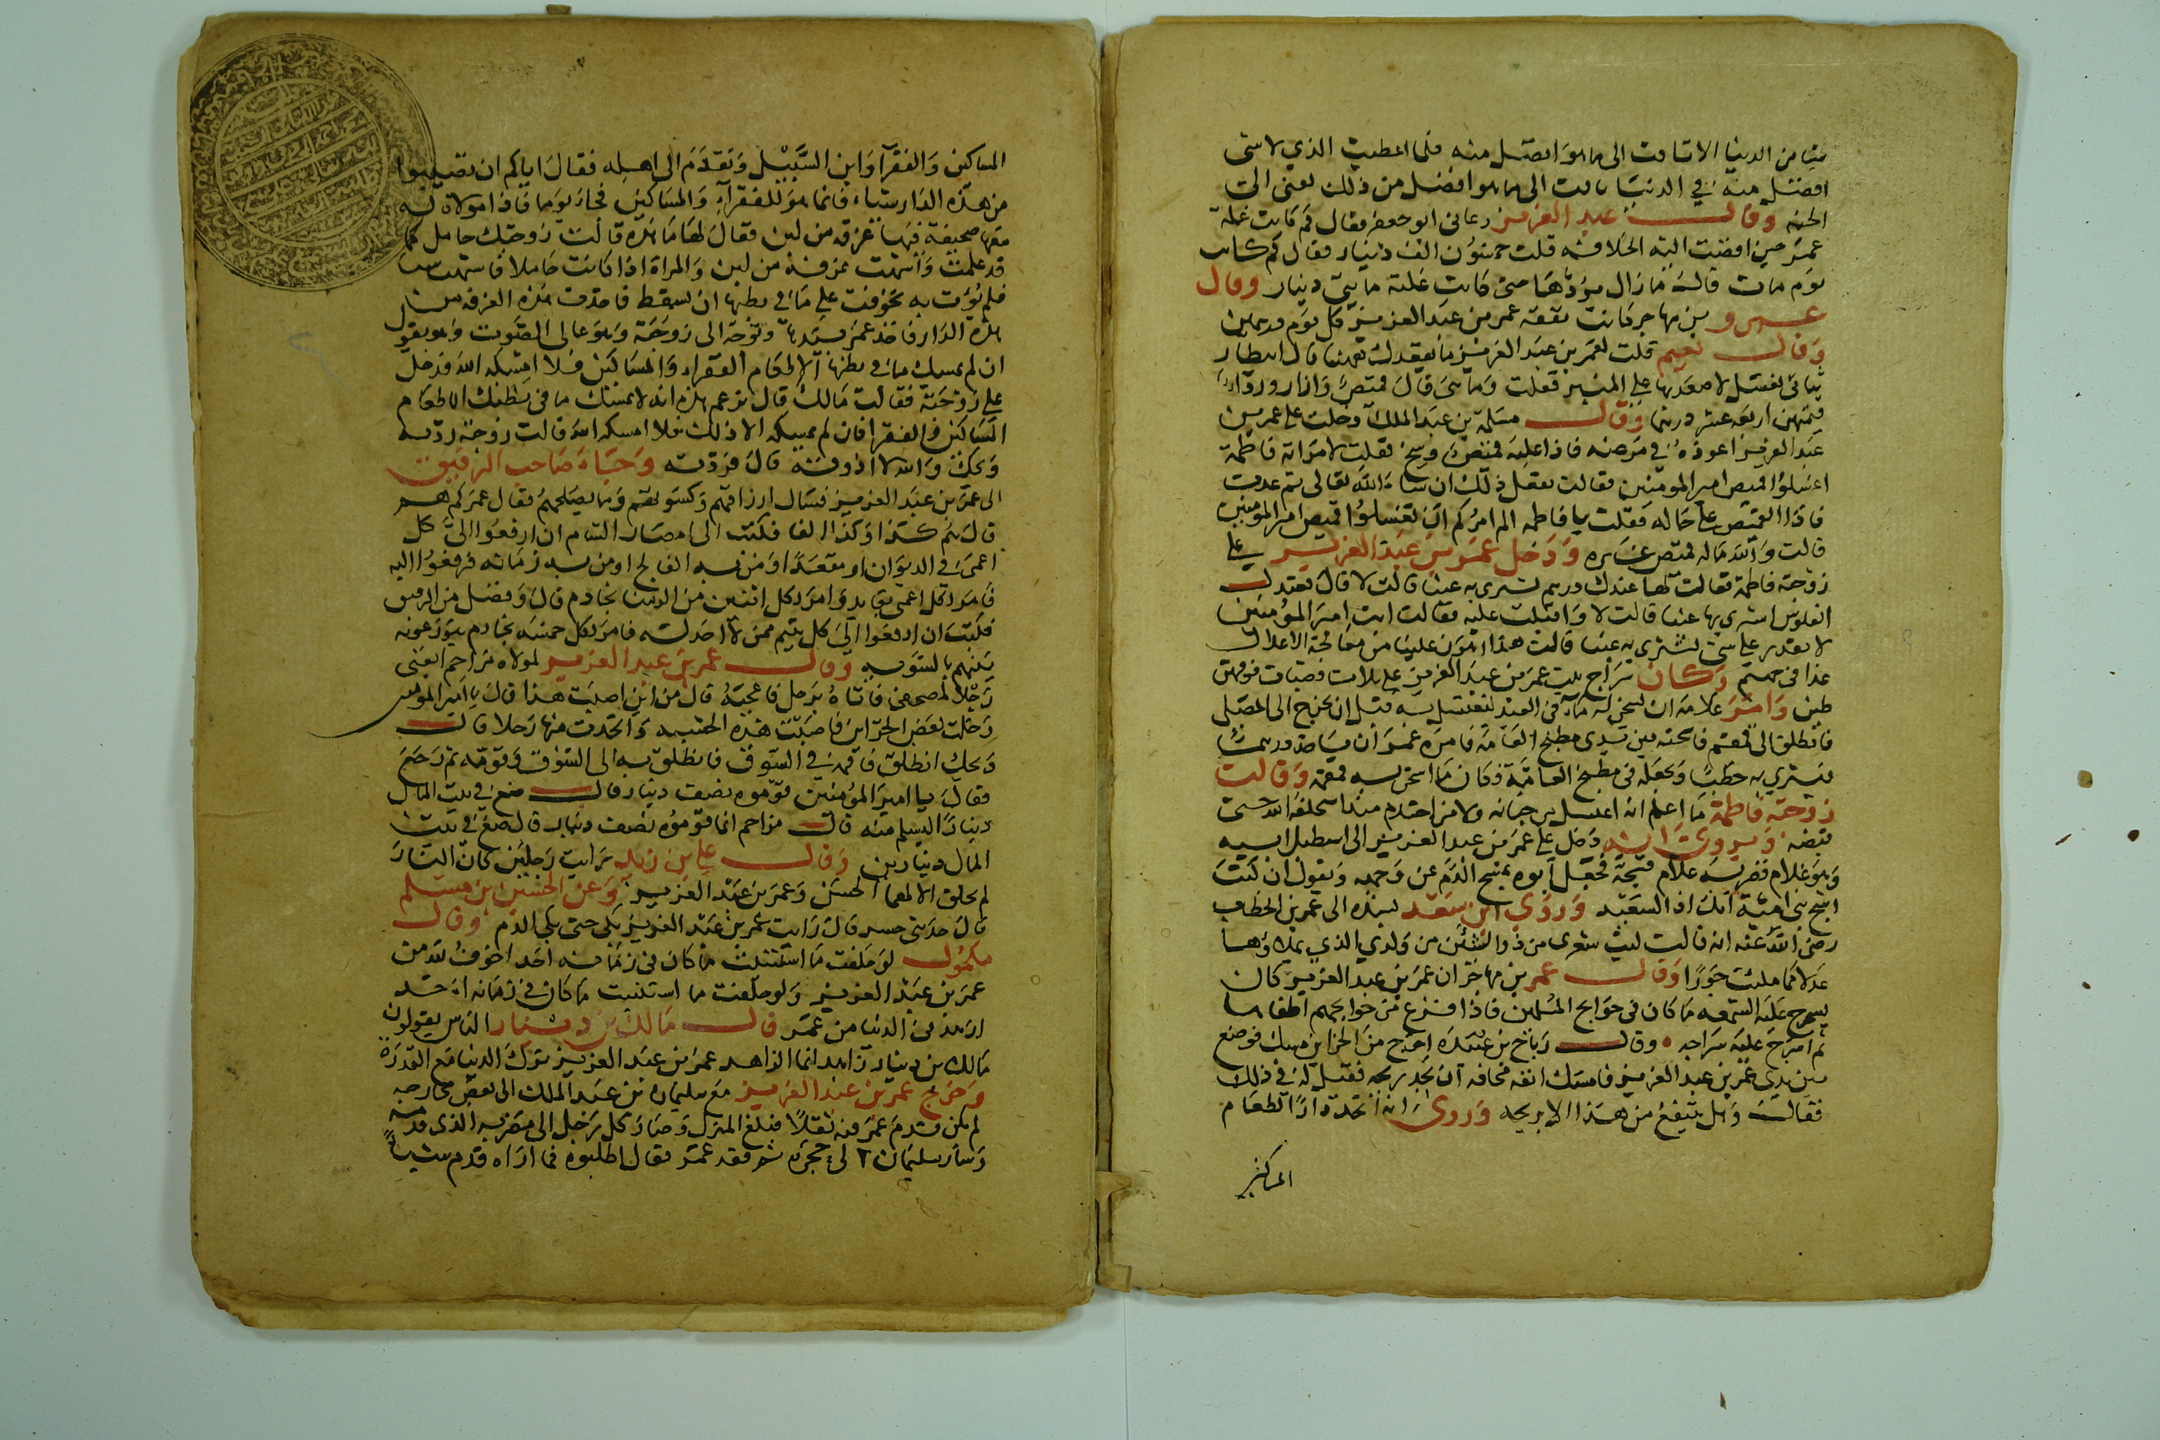 شيا من الدنيا الا تاقت الى ما هو افضل منه فلما اعطيت الذي لا شي
افضل منه في الدنيا تاقت الى ما هو افضل من ذلك يعني الى
الجنه وقال عبد العزيز دعاني ابو جعفر فقال كم كانت غلة
عمر حين افضت اليه الخلافة قلت خمسون الف دينار فقال كم كانت
يوم مات قال ما زال يردها حتى كانت غلته مايتي دينار وقال
عمرو بن مهاجر كانت نفقه عمر بن عبد العزيز كل يوم درهمين
وقال نعيم قلت لعمر بن عبد العزيز ما يقعدك عنا قال انتظار
ثيابي تغسل لاصعد بها على المنبر فقلت وما هي قال قميص وازار وردا
قيمتهن اربعة عشر درهما وقال مسلمة بن عبد الملك دخلت على عمر بن
عبد العزيز اعوده في مرضه فاذا عليه قميص وسخ فقلت لامراته فاطمة
اغسلوا قميص امير المومنين فقالت نفعل ذلك ان شاء الله تعالى ثم عدت
فاذا القميص على حاله فقلت يا فاطمه الم امركم ان تغسلوا قميص امير المومنين
قالت والله ماله قميص غيره ودخل عمر بن عبد العزيز على
زوجته فاطمة فقالت لها عندك درهم نشري به عنبا قالت لا قال فعندك
الفلوس اشتري بها عنبا قالت لا واقبلت عليه فقالت انت امير المؤمنين
لا تقدر على شي تشتري به عنبا قالت هذا اهون علينا من معالجة الاغلال
غدا في جهنم وكان سراج بيت عمر بن عبد العزيز على ثلاث قصبات فوقهن
طين وامر غلامه ان يسخن له ماء في العيد ليغتسل به قبل ان يخرج الى المصلى
فانطلق الى قمقم فاسخنه بين يدي مطبخ العامة فامره عمر ان ياخذ درهما
فيشتري به حطبا ويجعله في مطبخ العامة فكان ما اسخن به قمقمه وقالت
زوجته فاطمة ما اعلم انه اغتسل من جنابه ولا من احتلام منذ استخلفه الله حتى
قبضه ويروى انه دخل على عمر بن عبد العزيز الى اسطبل ابيه
وهو غلام فضربه غلام فشجه فجعل ابوه يمسح الدم عن وجهه ويقول ان كنت
اشج بني امية انك اذا لسعيد وروى ابن سعد بسنده الى عمر بن الخطاب
رضي الله عنه انه قال ليت شعري من ذو الشين من ولدي الذي يملاوها
عدلا كما ملئت جورا وقال عمر بن مهاجر ان عمر بن عبد العزيز كان
يسرج عليه الشمعه ما كان في حوايج المسلمين فاذا فرغ من حوايجهم اطفاها
ثم اسرج عليه سراجه وقال رباح بن عبيده اخرج من الخزاين مسك فوضع
بين يدي عمر بن عبد العزيز فامسك انفه مخافة ان يجد ريحه فقيل له في ذلك
فقال وهل ينتفع من هذا الا بريحه وروى انه اتخذ دار الطعام
المساكين والفقرا وابن السبيل وتقدم الى اهله فقال اياكم ان تصيبوا
من هذه الدار شيا فانما هو للفقراء والمساكين فجاء يوما فاذا مولاة له
معها صحيفة فيها غرفة من لبن فقال لها ما هذه قالت زوجتك حامل كما
قد علمت واشتهت غرفة من لبن والمراة اذا كانت حاملا فاشتهت شيا
فلم توت به تخوفت على ما في بطنها ان يسقط فاخذت هذه الغرفة من
هذه الدار فاخذ عمر بيدها وتوجه الى زوجته وهو عالي الصوت وهو يقول
ان لم يمسك ما في بطنها الا طعام الفقراء والمساكين فلا امسكه الله فدخل
على زوجته فقالت مالك قال تزعم هذه انه لا يمسك ما في بطنك الا طعام
المساكين والفقرا فان لم يمسكه الا ذلك فلا امسكه الله قالت زوجته رديه
ويحك والله لا اذوقه قال فردته وجاء صاحب الرقيق
الى عمر بن عبد العزيز فسال ارزاقهم وكسوتهم وما يصلحهم فقال عمر كم هم
قال هم كذا وكذا الفا فكتب الى امصار الشام ان ارفعوا الي كل
اعمى في الديوان او مقعدا او من به الفالج او من به زمانه فرفعوا اليه
فامر لكل اعمى بقايد وامر لكل اثنين من الزمنا بخادم قال وفضل من الرقيق
فكتب ان ارفعوا الي كل يتيم ممن لا احد له فامر لكل خمسه بخادم يتوزعونه
بينهم بالسويه وقال عمر بن عبد العزيز لمولاه مزاحم ابغني
رجلا لمصحفي فاتاه برحل فاعجبه قال من اين اصبت هذا قال يا امير المومنين
دخلت بعض الخزاين فاصبت هذه الخشبه واتخذت منها رحلا قال
ويحك انطلق فاقمه في السوق فانطلق به الى السوق وقومه ثم رجع
فقال يا امير المؤمنين قوموه نصف دينار قال ضع في بيت المال
دينارا ليسلم منه قال مزاحم انما قوموه نصف دينار قال ضع في بيت
المال دينارين وقال علي بن زيد رايت رجلين كان النار
لم تخلق الا لهما الحسن وعمر بن عبد العزيز وعن الحسين بن مسلم
قال حدثني قال رايت عمر بن عبد العزيز بكى حتى بكى الدم وقال
مكحول لو حلفت ما استثنيت ما كان في زمانه احد اخوف لله من
عمر بن عبد العزيز ولو حلفت ما استثنيت ما كان في زمانه احد
ازهد في الدنيا من عمر قال مالك بن دينار الناس يقولون
مالك بن دينار زاهد انما الزاهد عمر بن عبد العزيز ترك الدنيا مع القدرة
وخرج عمر بن عبد العزيز مع سليمان بن عبد الملك الى بعض مخارجه
لم يكن قدم عمر فيه ثقلا فبلغ المنزل وصار كل رجل الى مضربه الذي قدمه
وسار سليمان الى حجره ثم فقد عمر فقال اطلبوه فما اراه قدم شيا